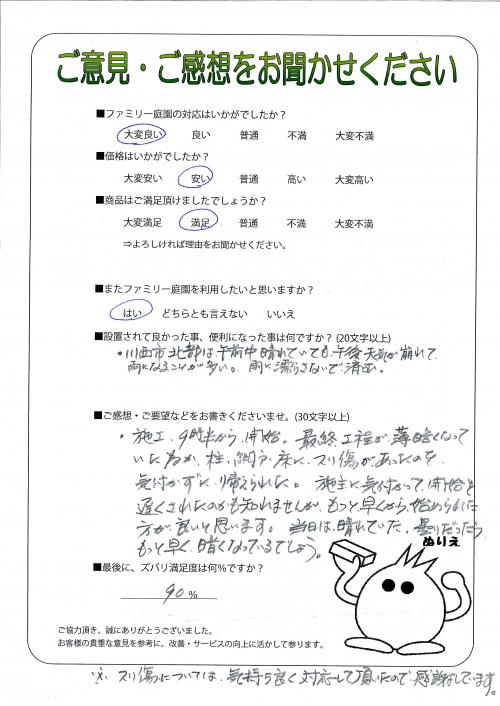 ご意見・ご感想をお聞かせください
■ファミリー庭園の対応はいかがでしたか？
大変良い 良い 普通 不満 大変不満
■価格はいかがでしたか？
大変安い 安い 普通 高い 大変高い
■商品はご満足頂けましたでしょうか？
大変満足 満足 普通 不満 大変不満
⇒よろしければ理由をお聞かせください。
■またファミリー庭園を利用したいと思いますか？
はい どちらとも言えない いいえ
■設置されて良かった事、便利になった事は何ですか？(20文字以上)
・川西市北部は午前中晴れていても午後天気が崩れて
雨になることが多い。雨に濡らさないで済む。
■ご感想・ご要望などをお書きくださいませ。(30文字以上)
・施工、9時半から開始。最終工程が薄暗くなって
いた為か、柱、網戸、床に、スリ傷があったのを、
気付かずに、帰えられた。施主に気付かって、開始を
遅くされたのかも知れませんが、もっと早くから始められた
方が良いと思います。当日は晴れていた。曇りだったら
もっと早く、暗くなっているでしょう。
ぬりえ
■最後に、ズバリ満足度は何％ですか？
90 %
ご協力頂き、誠にありがとうございました。
お客様の貴重な意見を参考に、改善・サービスの向上に活かして参ります。
※ スリ傷については、気持ち良く対応して頂いたので感謝しています。